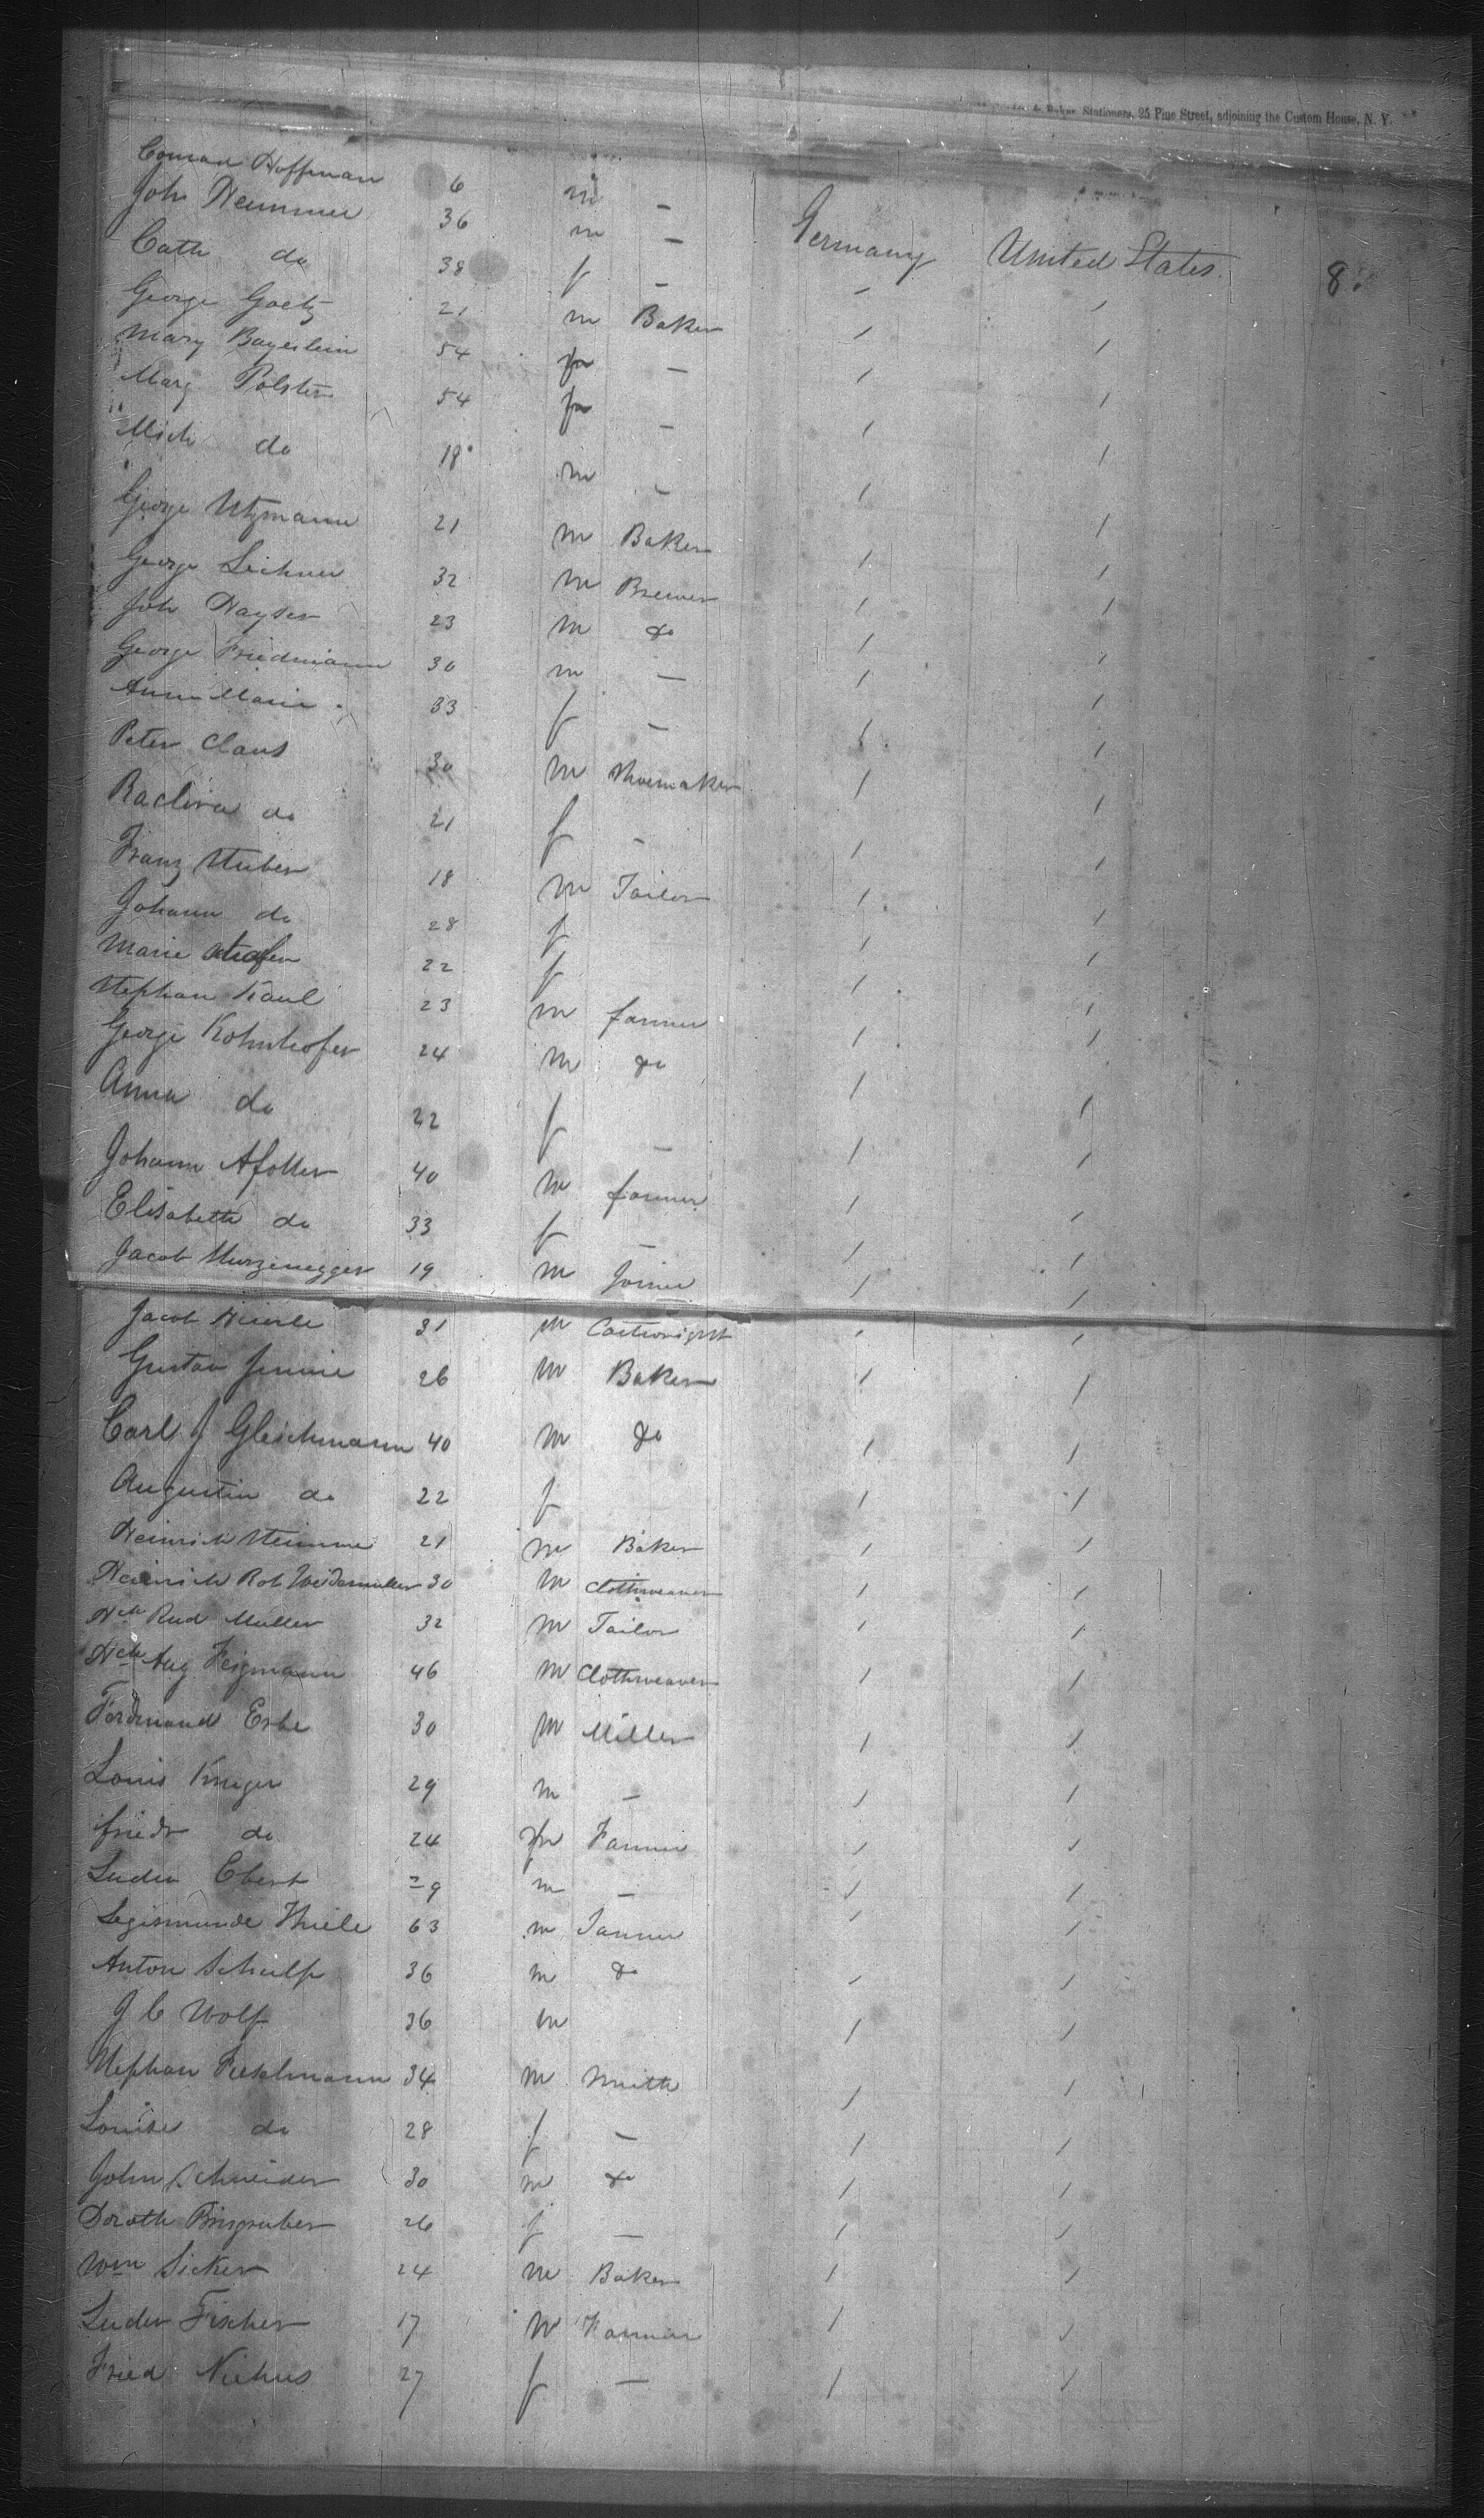 Baker, Stationers, 25 Pine Street, adjoining the Custom House, N. Y.
Conrad Hoffman 6 m —
Joh 36 m — Germany United States. 8
Cath do 38 f — / /
George Goetz 21 m Baker / /
Mary Bayerlein 54 f — / /
Marg Polster 54 f — / /
Mich do 18 m — / /
George Utzmann 21 m Baker / /
George Leichner 32 m Brewer / /
Joh Hayser 23 m do / /
George Friedmann 30 m — / /
Anna Maria 33 f — / /
Peter Claus 30 m Shoemaker / /
do 21 f — / /
Franz Stuber 18 m Tailor / /
Johann do 28 f / /
Marie 22 f / /
Stephan Kaul 23 m farmer / /
George Kohnhofer 24 m do / /
Anna do 22 f — / /
Johann Afolter 40 m farmer / /
Elisabetta do 33 f — / /
Jacob Murzenegger 19 m Joiner / /
Jacob Hierle 31 m Cartwright / /
Gustav 26 m Baker / /
Carl J Gleichmann 40 m do / /
Augustin do 22 f / /
Heinrich Steimme 21 m Baker / /
Heinrich Rob Weidemuller 30 m Clothweaver / /
Hch Rud Muller 32 m Tailor / /
Hch Aug Feigmann 46 m Clothweaver / /
Ferdinand Erbe 30 m Miller / /
Louis Kruger 29 m — / /
friedr do 24 Farmer / /
Luder Ebert 29 m — / /
Segismunde Thiele 63 m / /
Anton Schulp 36 m do / /
J C Wolf 36 m / /
Stephan 34 m Smith / /
Louise do 28 f — / /
John Schneider 30 m do / /
Doroth Brisgruber 26 f — / /
Wm Sicker 24 m Baker / /
Luder Fischer 17 m Farmer / /
Fried Niehus 27 f — / /